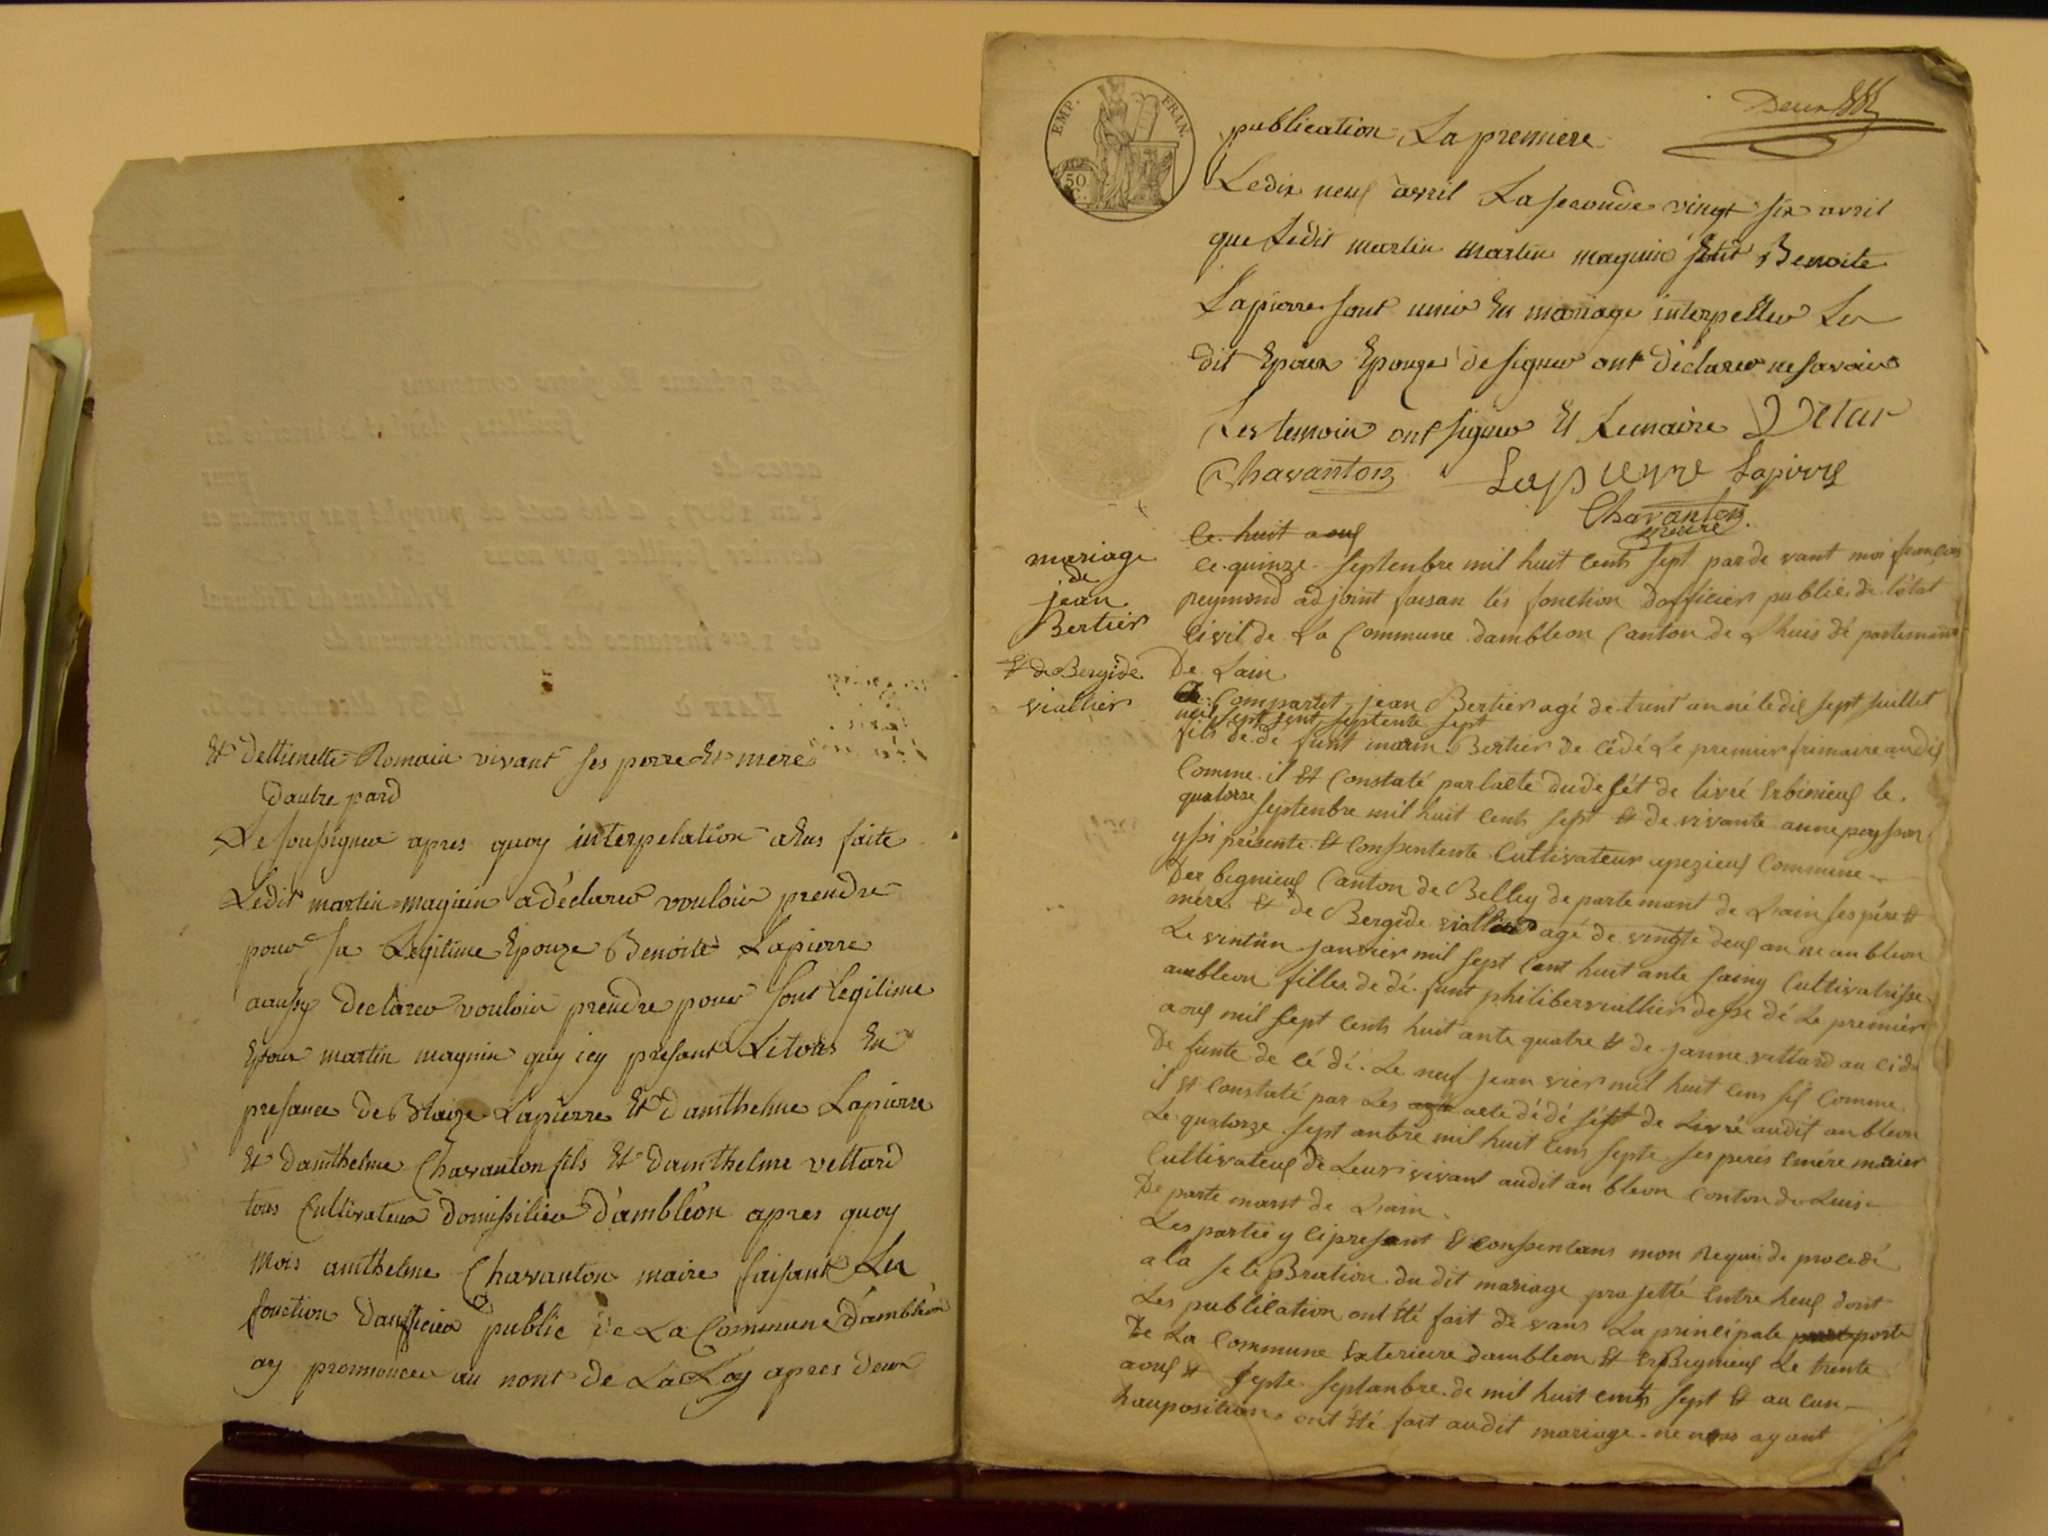 Et dettienette Romain vivant ses perre Et mere
dautre pard
Le soussigner apres quoy interpelation a Eus faite
Ledit martin magnin a déclarer vouloir prendre
pour sa Legitime Epouze Benoite Lapierre
aausy declarer vouloir prendre pour sont Legitime
Epoux martin magnin quy icy presant Le tous En
presance de Blaize Lapierre Et d'amthelme Lapierre
Et damthelme Chavanton fils Et damthelme vettard
tous Cultivateur domissilier d'ambléon apres quoy
mois amthelme Chavanton maire faisant Les
fonction dausficier public de La Commune d'ambléon
ay prononcer au nont de La Loy apres deux
EMP. FRAN.
50 C.
Deux
publication La premiere
Le dix neuf avril La seconde vingt six avril
que Ledit martin martin magnin Benoite
Lapierre sont unis En mariage interpeller Les
dit Epoux Epouze de signer ont déclarer ne savoir
Les temoin ont signer Et Lemaire
Chavanton Lapierre Lapierre
Chavanton
maire
mariage
de
jean
Bertier
Et de Bergide
viallier
Ce huit aout
Ce quinze septenbre mil huit cents sept par de vant moi francois
reymond adjoint faisan lés fonction dofficier publie de l'état
Civil de La Commune dambleon Canton de Lhuis dé partemant
De Lain
Compartet jean Bertier agé de trent an né le dis sept juillet
mil sept sent septente sept
fils de dé funt marin Bertier de cédé Le premier frimaire an dis
Comme il Et constaté par lacte du de sét de livré Erbinieus le
quatorse septenbre mil huit cents sept Et de vivante anne peysson
y si présente Et consentente Cultivateur apezieus Commune
Der bignieus Canton de Belley de partemant de Lain ses pére Et
mére Et de Bergide viallier agé de vingte deus an ne anbleon
Le vintun janvier mil sept cant huit ante saing Cultivatrisse
anbleon filles de dé funt philiber viallier desse dé Le premiér
aous mil sept cents huit ante quatre Et de janne vettard au ci de
De funte de cé dé Le neuf jean vier mil huit cens sis Comme
il Et constaté par Les acte dé dé sést de Livré audit anbleon
Le quatorze sept anbre mil huit cens septe ses peres Emére
Cultivateus de Leur vivant audit an bleon Conton de Luis
De parte mant de Lain
Les partie y ci presant Et consentans mon Requi de procedé
a la se lé Bration du dit mariage pro jetté Entre heus dont
Les publication ont Eté fait de vans La principale porte
De La Commune Exterieure dambleon Et Erbignieus Le trente
aous Et septe septanbre de mil huit cents sept Et au cun
hauposition ont Eté fait audit mariage ne nous ayant